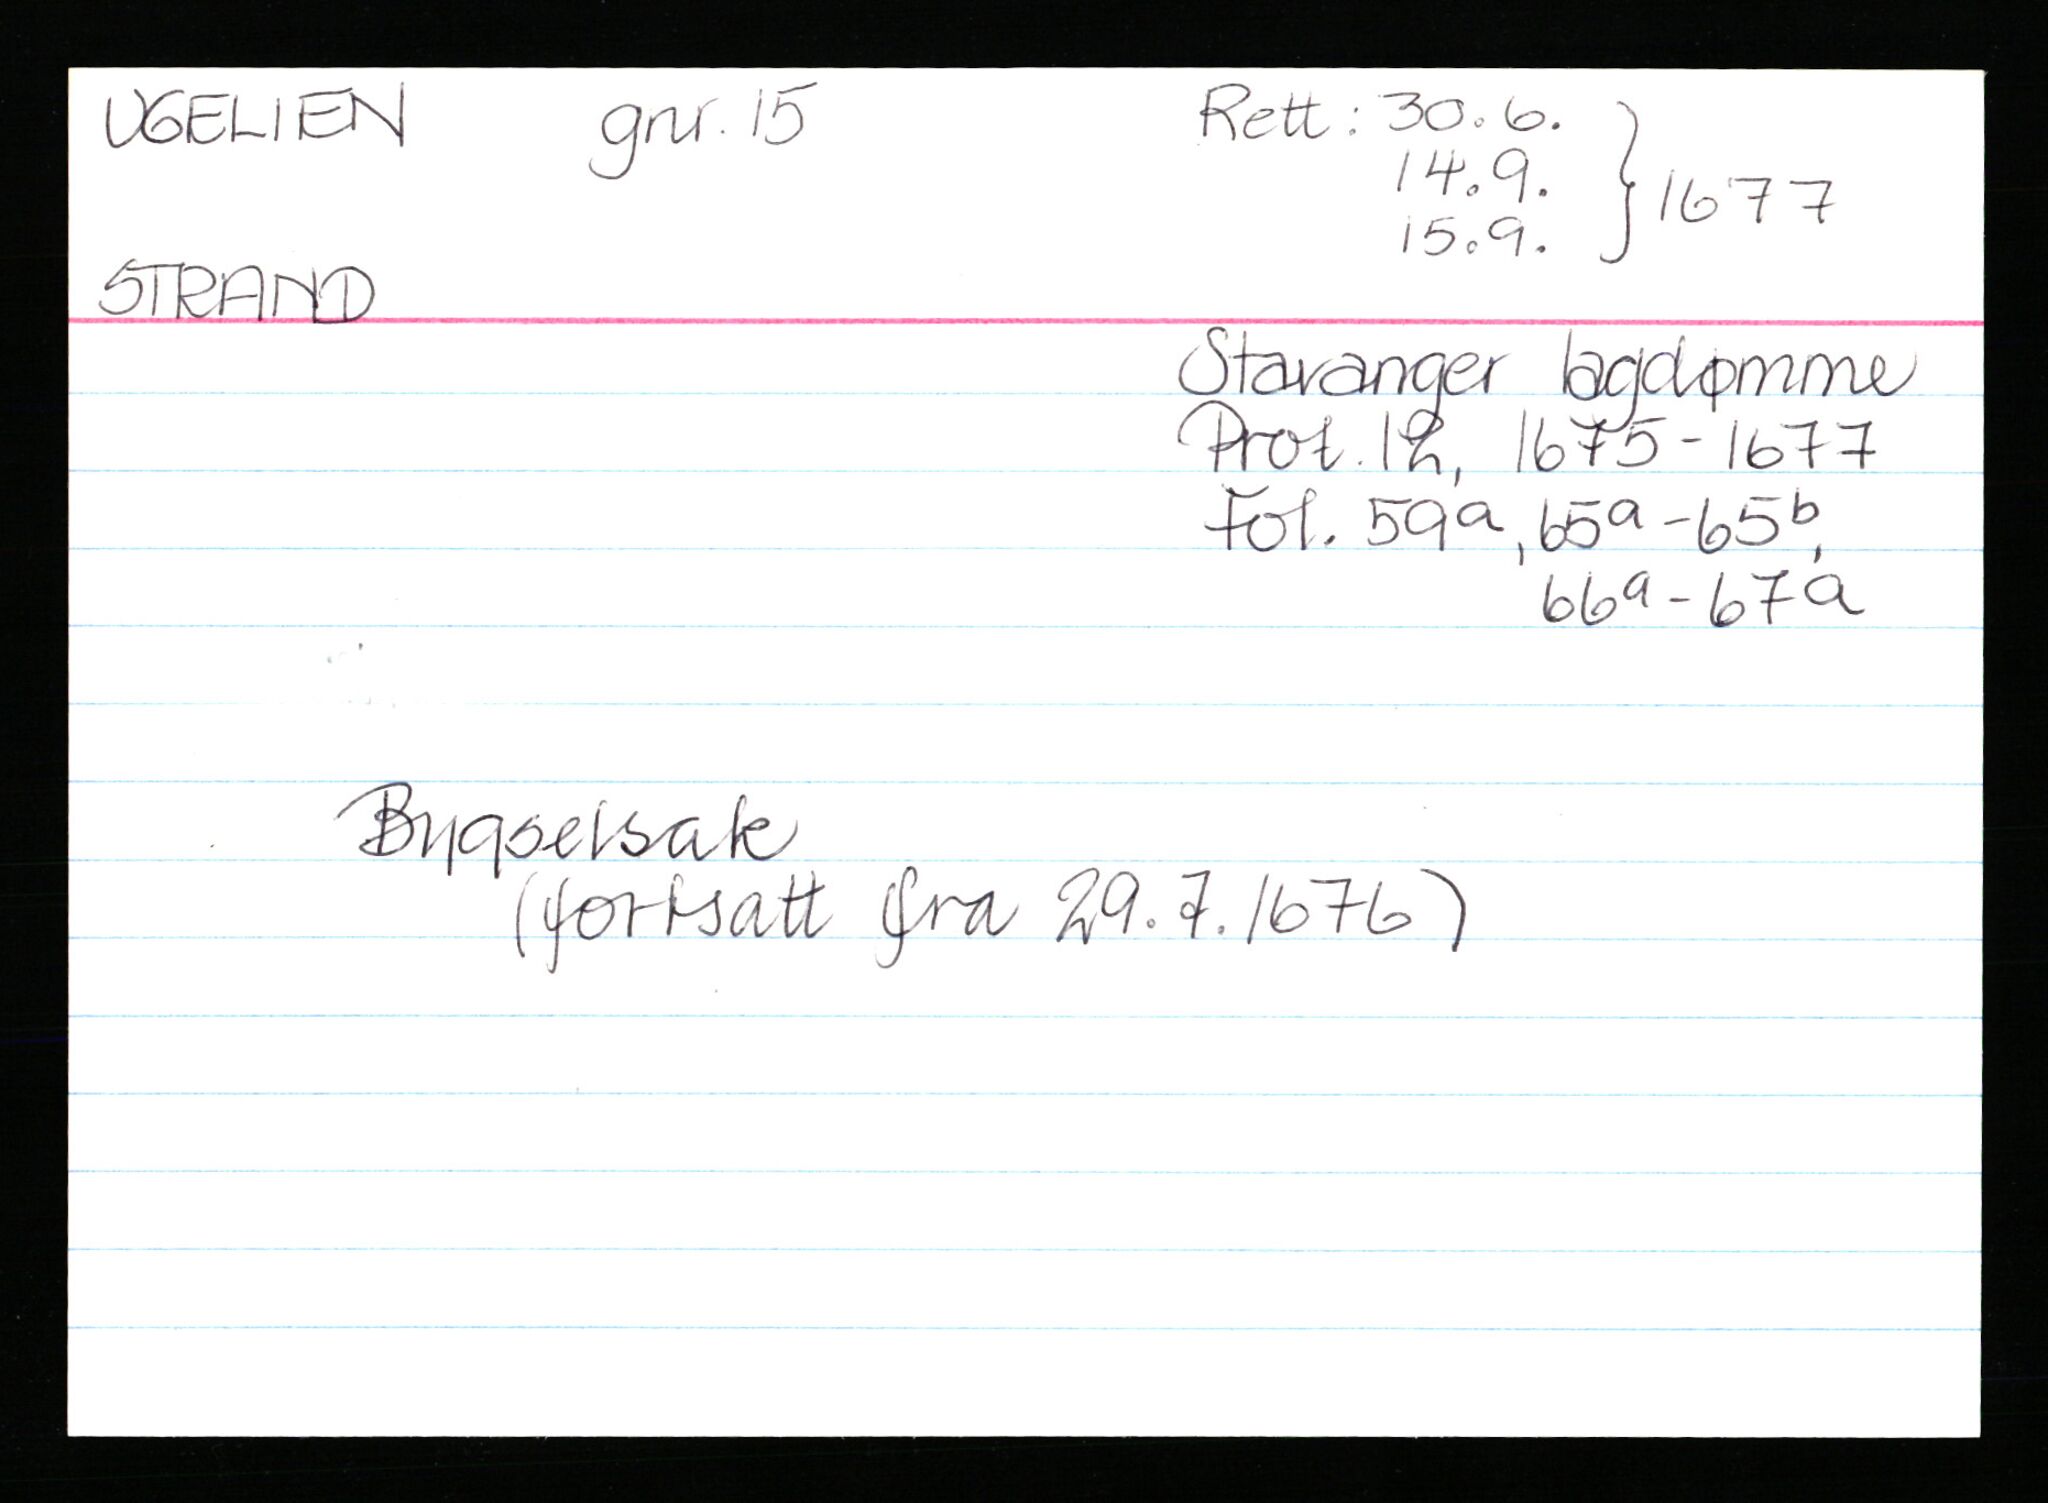 UGELIEN gnr. 15 Rett: 30.6.
14.9.
15.9. } 1677
STRAND
Stavanger lagdømme
Prot. 12, 1675-1677
Fol. 59a, 65a-65b,
66a-67a
Bygselsak
(fortsatt fra 29.7.1676)